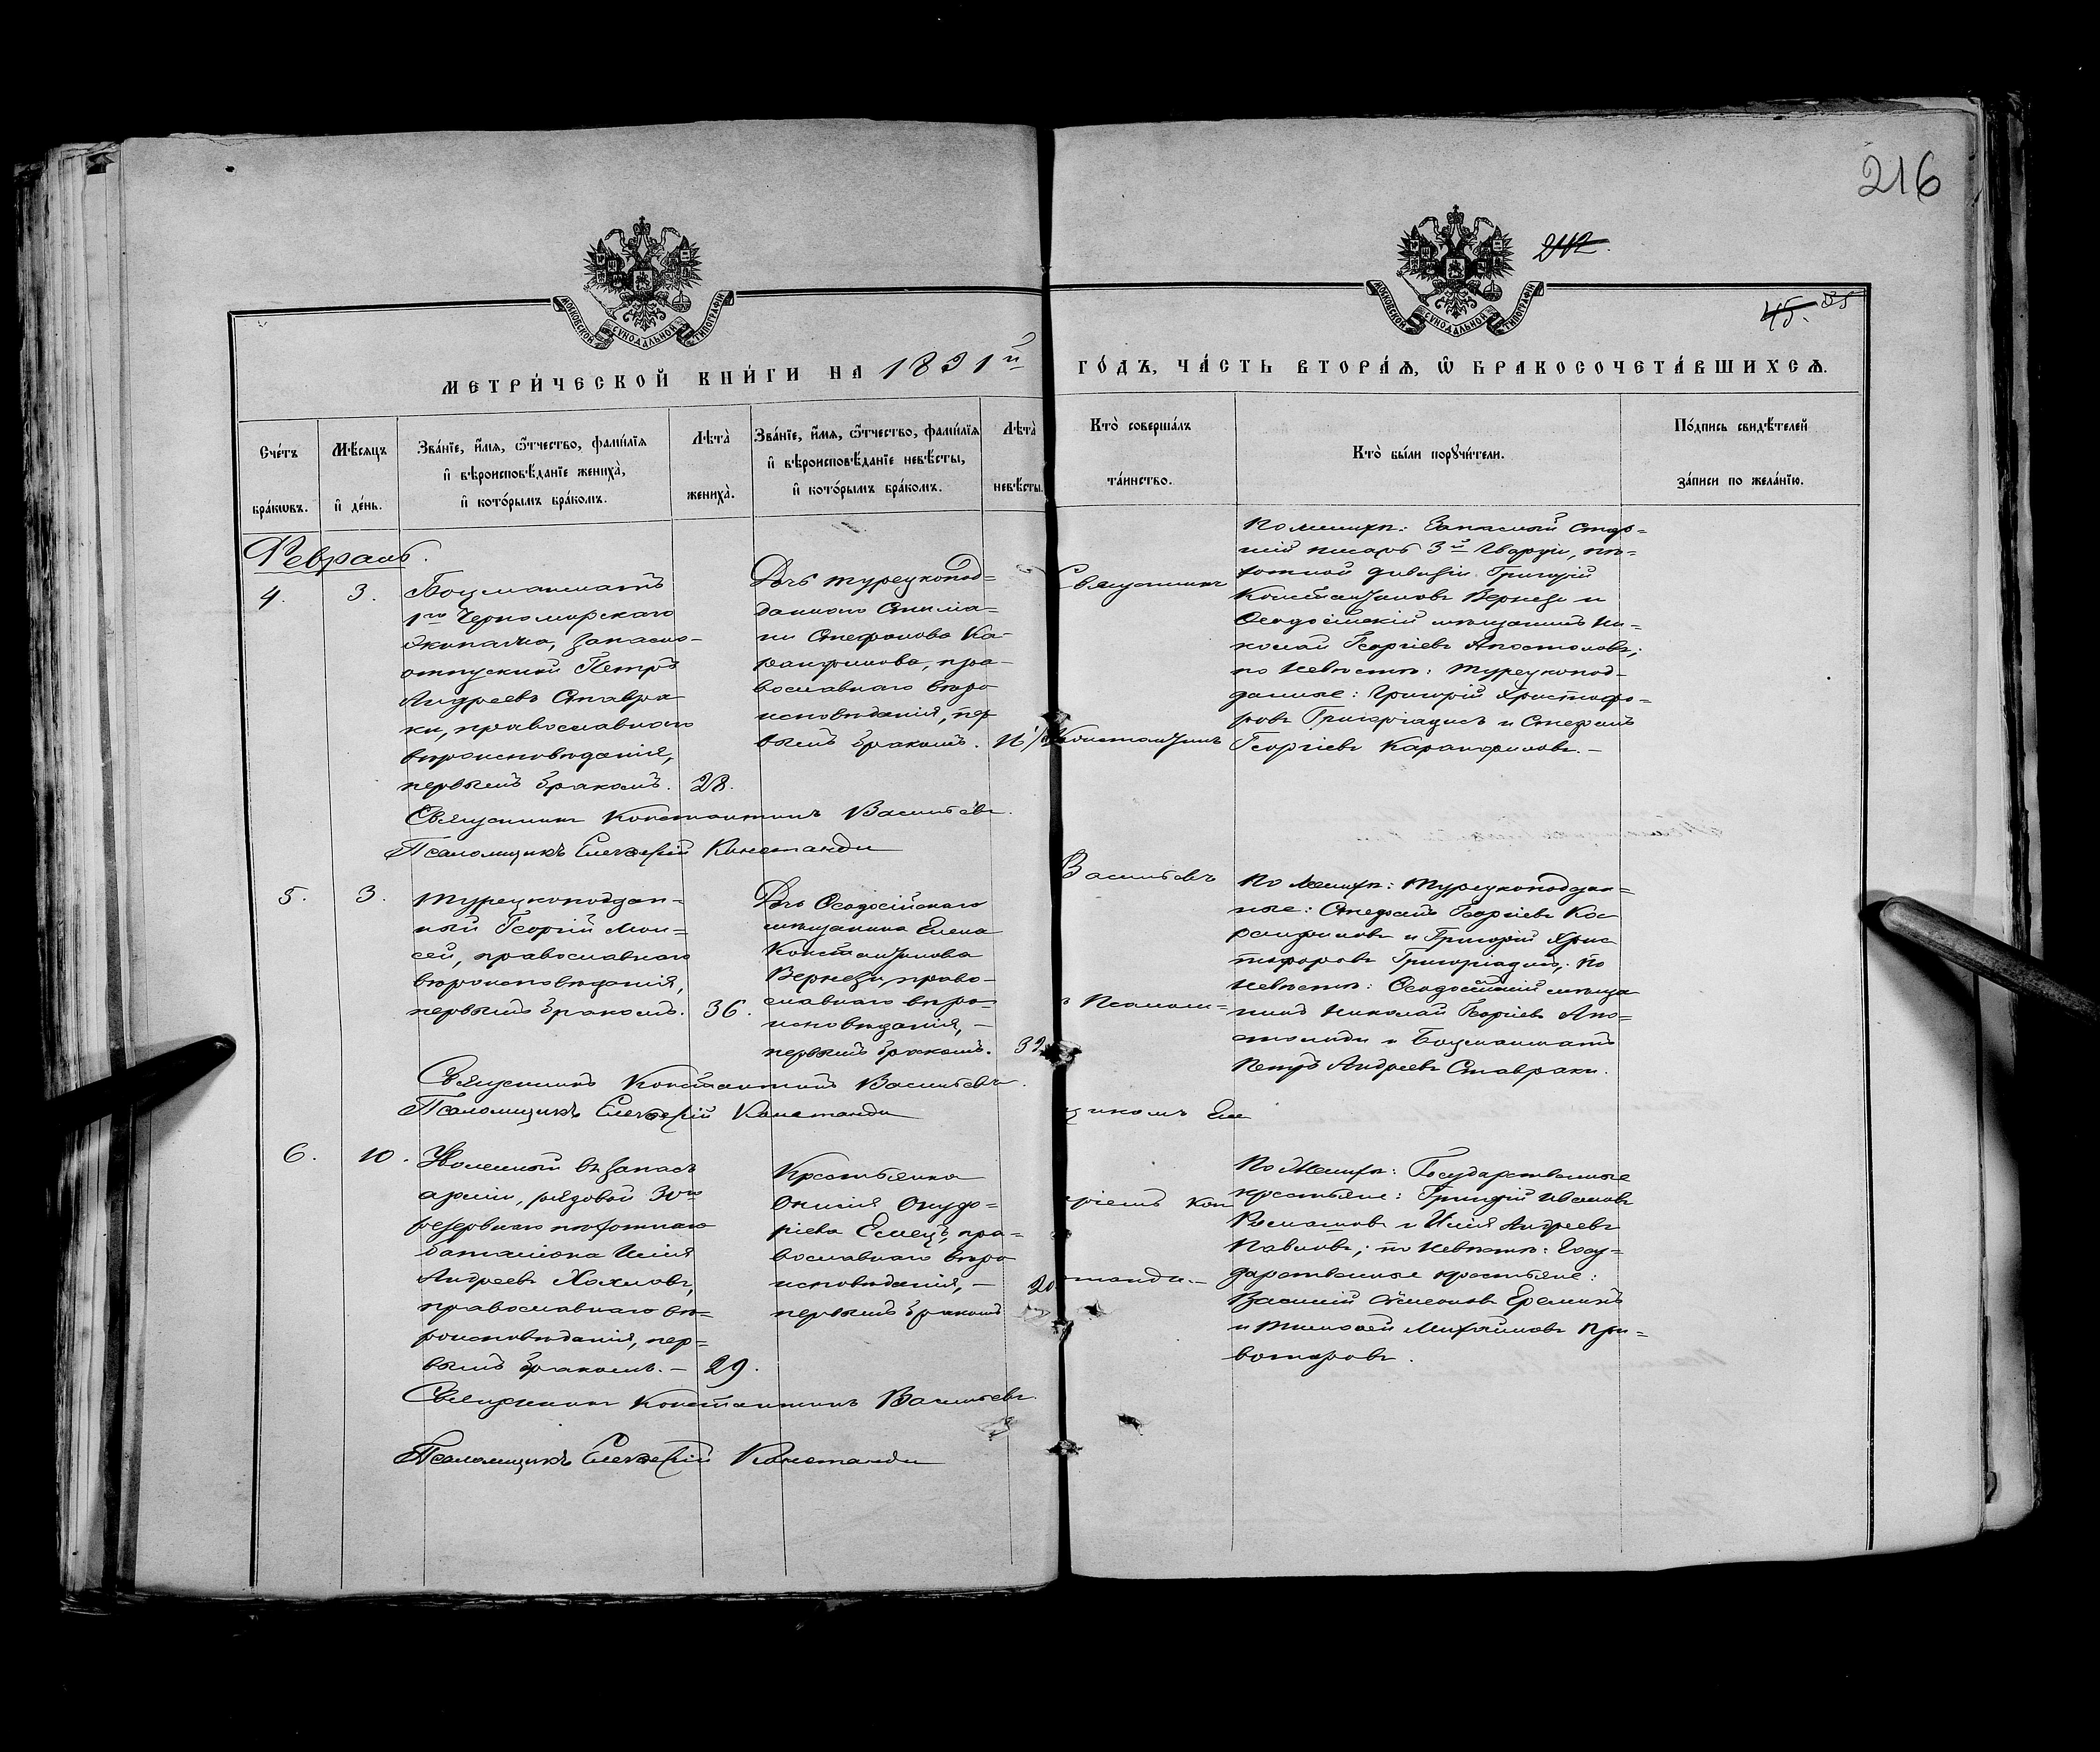 216
212.
45. 35
МОСКОВСКОЙ СѴНОДАЛЬНОЙ ТИПОГРАФІИ
МОСКОВСКОЙ СѴНОДАЛЬНОЙ ТИПОГРАФІИ
МЕТРИ́ЧЕСКОЙ КНИ́ГИ НА 1891й
ГО́ДЪ, ЧА́СТЬ ВТОРА́Ѧ, Ѡ҆ БРАКОСОЧЕТА́ВШИХСѦ.
Сче́тъ
бра́кѡвъ.
Мѣ́сѧцъ
и҆ де́нь.
Зва́нїе, и҆́мѧ, ѻ҆́тчество, фами́лїѧ
и҆ вѣроисповѣ́данїе жениха̀,
и҆ кото́рымъ бра́комъ.
Лѣта̀
жениха̀.
Зва́нїе, и҆́мѧ, ѻ҆́тчество, фами́лїѧ
и҆ вѣроисповѣ́данїе невѣ́сты,
и҆ кото́рымъ бра́комъ.
Лѣта̀
невѣ́сты.
Кто̀ соверша́лъ
та́инство.
Кто̀ бы́ли порꙋчи́тели.
По́дпись свидѣ́телей
за́писи по жела́нїю.
Февраль.
4.
3.
Боцманматъ
1го Черноморскаго
экипажа, запасно-
отпускный Петръ
Андреевъ Ставра
ки, православнаго
вѣроисповѣданія,
первымъ бракомъ.
28.
Дочь турецкопод=
даннаго
Стефанова Ка-
ранфилова, пра-
вославнаго вѣро
исповѣданія, пер
вымъ бракомъ.
Священникъ
Константинъ
По женихѣ: Запасный стар=
шій писарь 3й Гвардій, пѣ=
хотной дивизіи Григорій
Константиновъ Вернези и
Ѳеодосійскій мѣщанинъ Ни=
колай Георгіевъ Апостоловъ;
по невѣстѣ: турецкопод-
данные: Григорій Христофо=
ровъ Григоріадисъ и Стефанъ
Георгіевъ Каранфиловъ.-
Священникъ Константинъ Васильевъ.
Псаломщикъ Елевѳерій Константи
5.
3.
турецкоподдан=
ный Георгій Мои=
сей, православнаго
вѣроисповѣданія,
первымъ бракомъ.
36.
Дочь Ѳеодосійскаго
мѣщанина Елена
Константинова
Вернези, право-
славнаго вѣро=
исповѣданія, -
первымъ бракомъ.
Васильевъ
ъ Псалом=
щикомъ Еле
По женихѣ: турецкоподдан=
ные: Стефанъ Георгіевъ Ка
ранфиловъ и Григорій Хрис
тофоровъ Григоріадисъ; по
невѣстѣ: Ѳеодосійскій мѣща
нинъ Николай Георгіевъ Апо=
столиди и Боцманматъ
Петръ Андреевъ Ставраки.
Священникъ Константинъ Васильевъ.
Псаломщикъ Елевѳерій Константи
6.
10.
Уволенный въ запасъ
арміи, рядовой 30го
резервнаго пѣхотнаго
баталіона Илія
Андреевъ Хохловъ,
православнаго вѣ=
роисповѣданія, пер=
вымъ бракомъ.-
29.
Крестьянка
Ѳеклея Онуф=
ріева Емецъ, пра=
вославнаго вѣро
исповѣданія, -
первымъ бракомъ
20.
ріемъ Кон
станди.-
По Женихѣ: Государственные
крестьяне: Григорій Ивановъ
Романовъ и Илія Андреевъ
Павловъ; по невѣстѣ: Госу-
дарственные крестьяне:
Василій Симеоновъ Ереминъ
и Тимоѳей Михайловъ Кри=
воторовъ.
Священникъ Константинъ Васильевъ.
Псаломщикъ Елевѳерій Константи